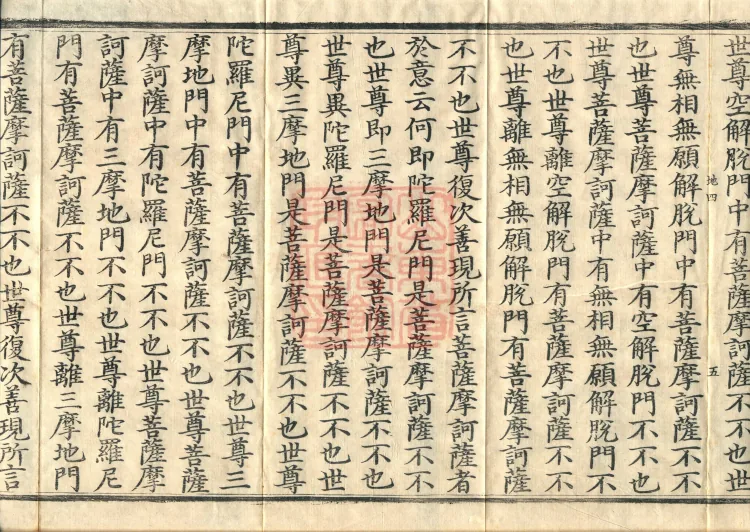 世尊空解脫門中有菩薩摩訶薩不不也世
地四 五
尊無相無願解脫門中有菩薩摩訶薩不不
也世尊菩薩摩訶薩中有空解脫門不不也
世尊菩薩摩訶薩中有無相無願解脫門不
不也世尊離空解脫門有菩薩摩訶薩不不
也世尊離無相無願解脫門有菩薩摩訶薩
不不也世尊復次善現所言菩薩摩訶薩者
於意云何即陀羅尼門是菩薩摩訶薩不不
也世尊即三摩地門是菩薩摩訶薩不不也
世尊異陀羅尼門是菩薩摩訶薩不不也世
尊異三摩地門是菩薩摩訶薩不不也世尊
陀羅尼門中有菩薩摩訶薩不不也世尊三
摩地門中有菩薩摩訶薩不不也世尊菩薩
摩訶薩中有陀羅尼門不不也世尊菩薩摩
訶薩中有三摩地門不不也世尊離陀羅尼
門有菩薩摩訶薩不不也世尊離三摩地門
有菩薩摩訶薩不不也世尊復次善現所言